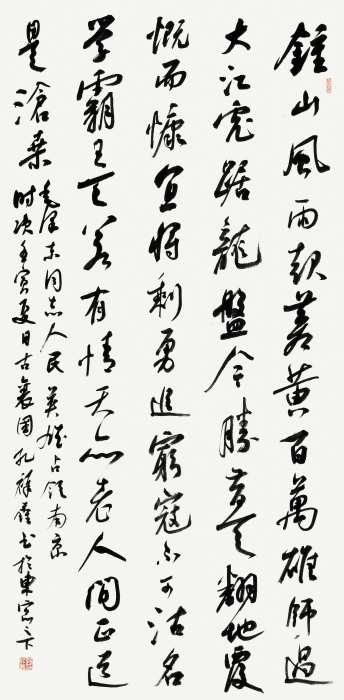 鍾山風雨起蒼黃百萬雄師過
大江虎踞龍盤今勝昔天翻地覆
慨而慷宜將剩勇追窮寇不可沽名
學霸王天若有情天亦老人間正道
是滄桑
毛澤东同志人民占领南京
时次壬寅夏日古襄國孔祥书於東窗下